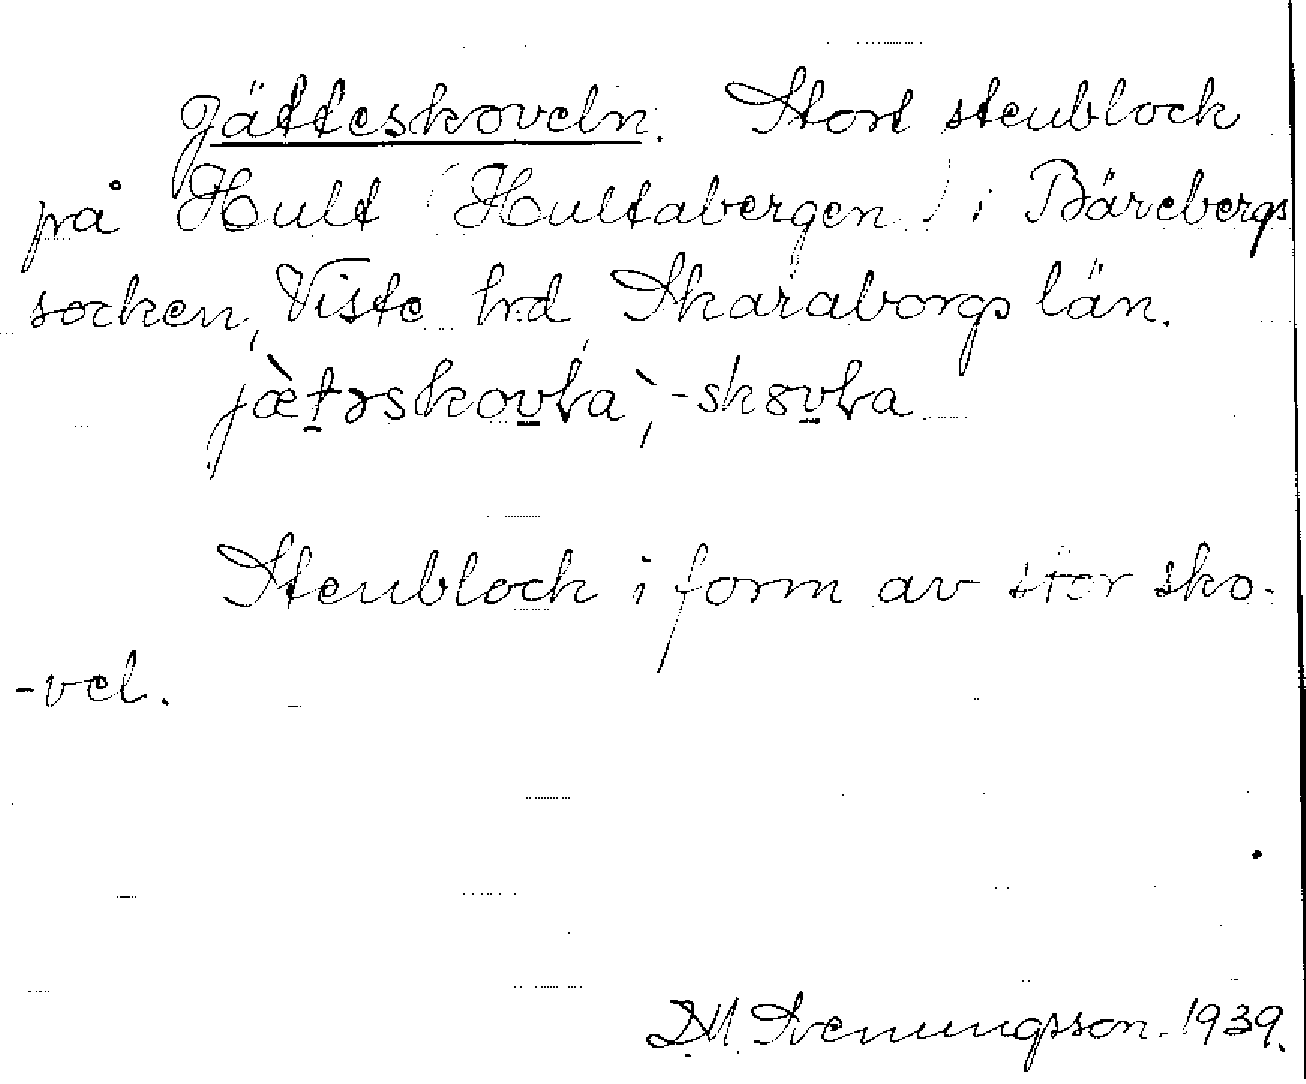 Jätteskoveln. Stort stenblock
på Hult (Hultabergen) i Bärebergs
socken, Viste hd, Skaraborgs län.
jæ̀t̠əskov̠ɫa`, -skɞv̠ɫa
Stenblock i form av stor sko-
-vel.
D.M. Svenungsson. 1939.